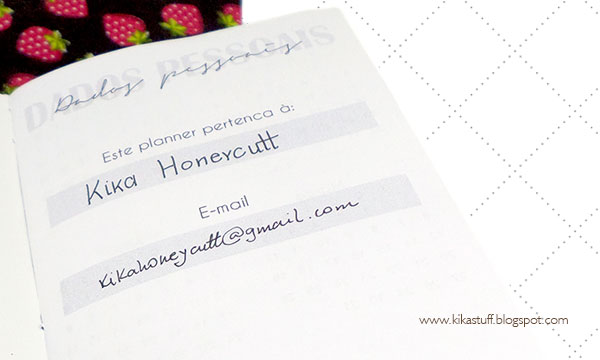 DADOS PESSOAIS
Dados pessoais
Este planner pertenca à:
Kika Honeycutt
E-mail
kikahoneycutt@gmail.com
www.kikastuff.blogspot.com